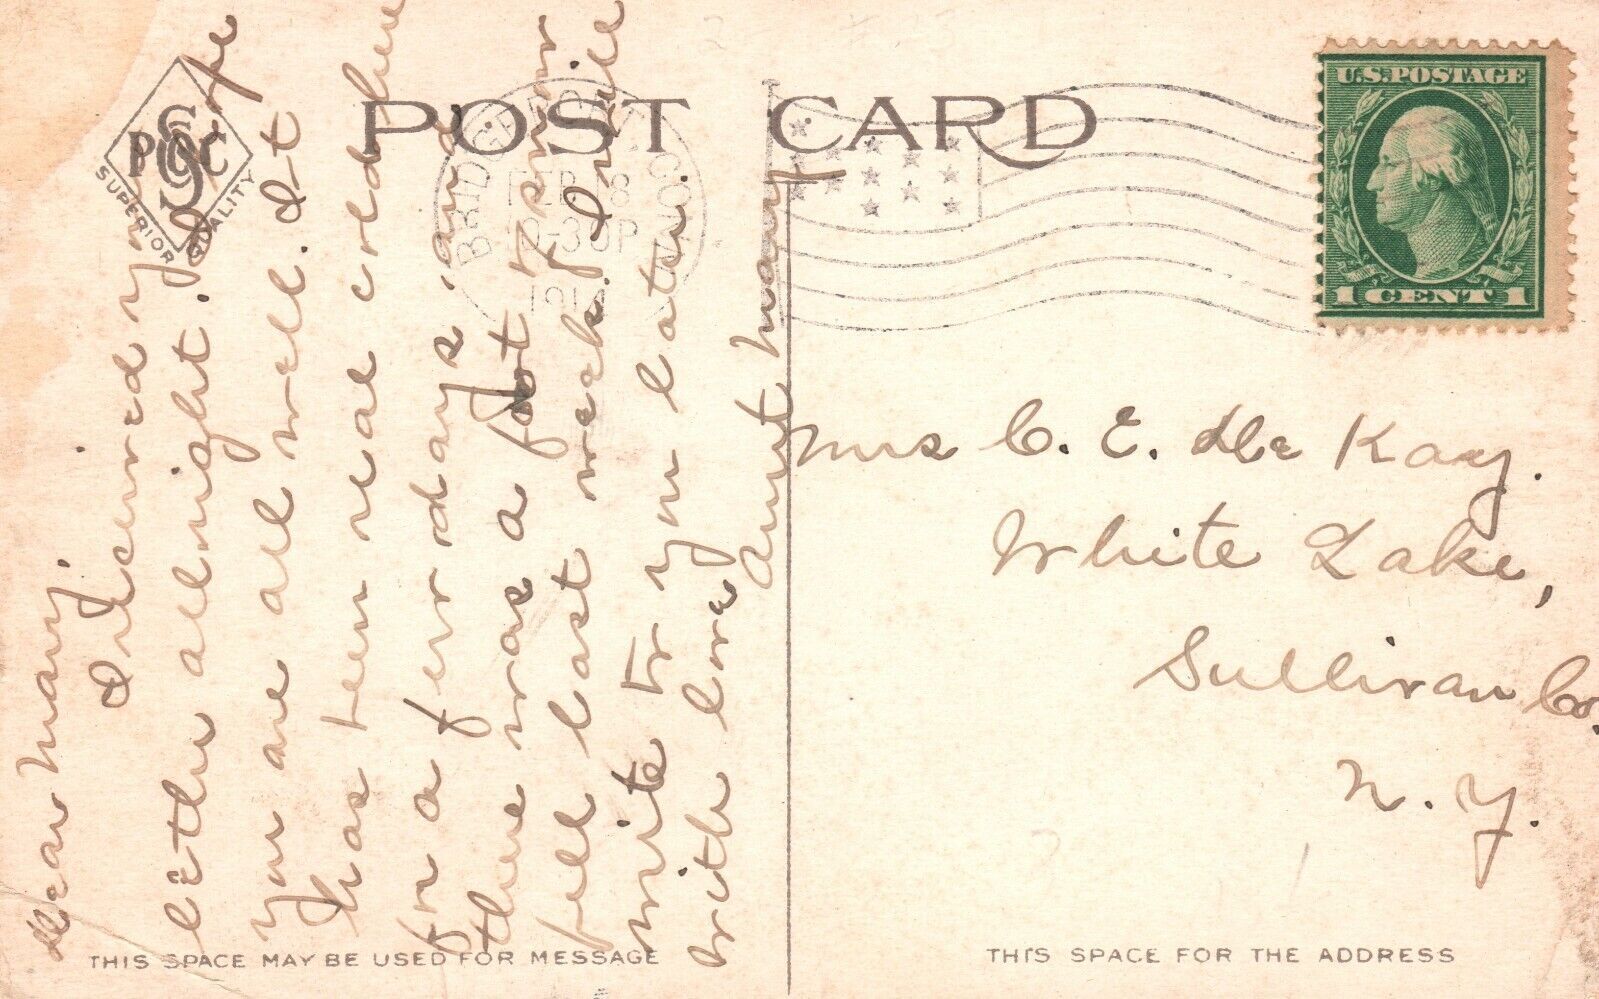 POST CARD
S
P C
SUPERIOR QUALITY
BRIDGEPORT CONN
FEB 18
12-30P
191
U.S. POSTAGE
1 CENT 1
Dear Mary.
I received your
letter allright. I hope
you are all well. It
has been real cold here
for a few days and
there was a foot of snow
fell last week. I will
write to you later.
with love
Aunt Mary
Mrs C. E. De Kay.
White Lake,
Sullivan Co.
N. Y.
THIS SPACE MAY BE USED FOR MESSAGE
THIS SPACE FOR THE ADDRESS